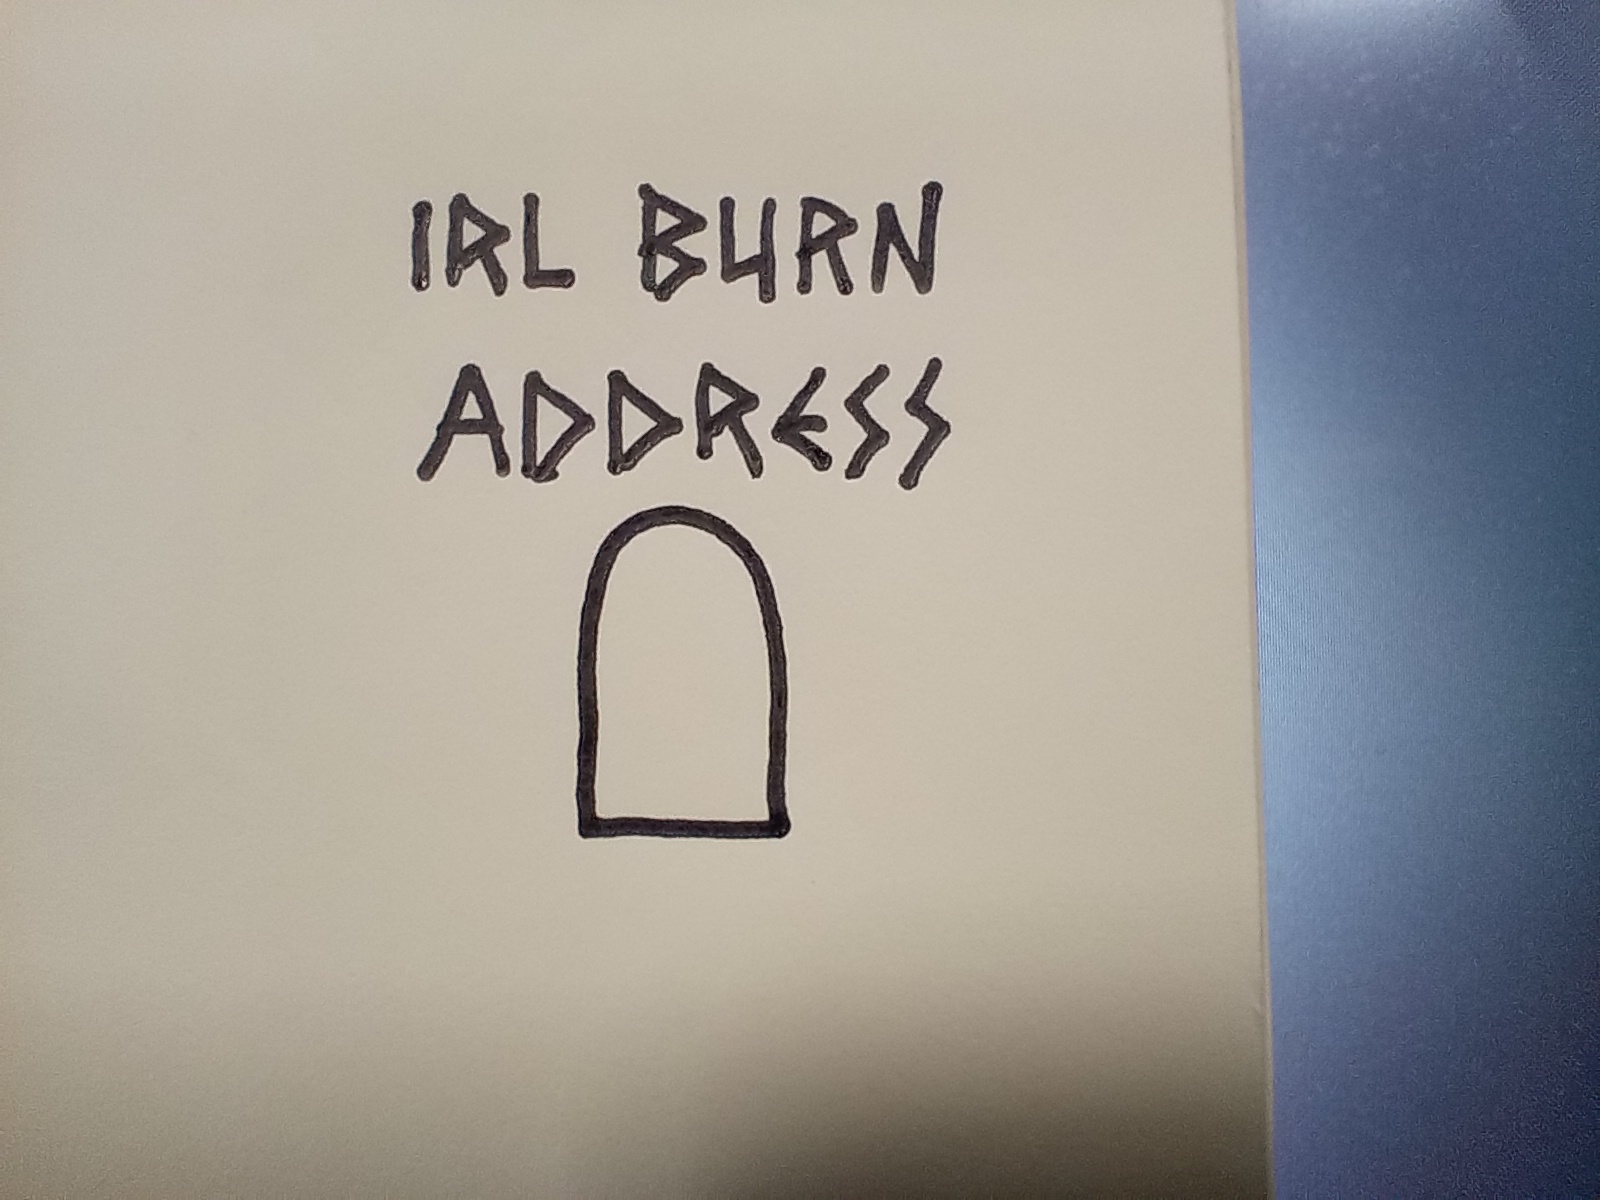 IRL BURN
ADDRESS